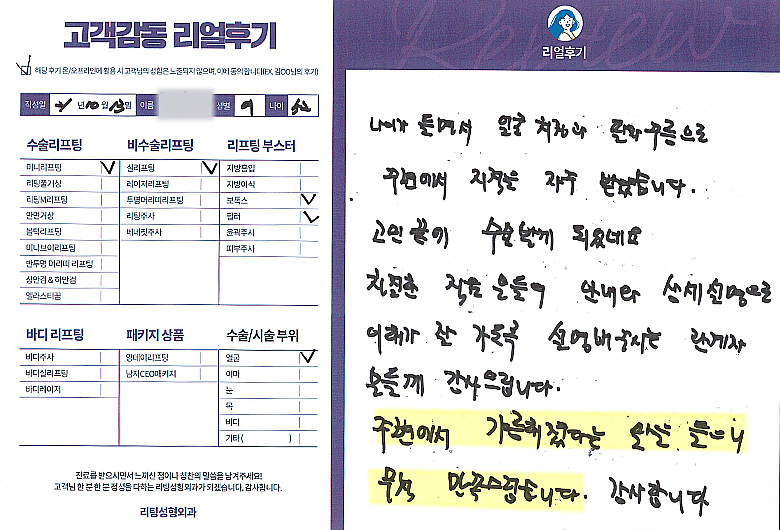 고객감동 리얼후기
해당 후기 온/오프라인에 활용 시 고객님의 성함은 노출되지 않으며, 이에 동의 합니다(EX. 김OO님의 후기)
작성일 년 10 월 13 일 이름 성별 여 나이 52
수술리프팅
미니리프팅
리팅풀거상
리팅M리프팅
안면거상
볼턱리프팅
미니브이리프팅
반투명 머리띠 리프팅
상안검 & 하안검
엘라스티꿈
비수술리프팅
실리프팅
레이저리프팅
투명머리띠리프팅
리팅주사
베네핏주사
리프팅 부스터
지방흡입
지방이식
보톡스
필러
윤곽주사
피부주사
바디 리프팅
바디주사
바디실리프팅
바디레이저
패키지 상품
앙데이리프팅
남자CEO패키지
수술/시술 부위
얼굴
이마
눈
목
바디
기타( )
진료를 받으시면서 느끼신 점이나 칭찬의 말씀을 남겨주세요!
고객님 한 분 한 분 정성을 다하는 리팅성형외과가 되겠습니다. 감사합니다.
리팅성형외과
Review
리얼후기
나이가 들면서 얼굴 처짐과 팔자주름으로
주변에서 지적을 자주 받았습니다.
고민 끝에 수술받게 되었네요
친절한 직원 분들의 안내와 상세설명으로
이해가 잘 가도록 설명해주시는 관계자
분들께 감사드립니다.
주변에서 갸름해졌다는 소리를 들으니
무척 만족스럽습니다. 감사합니다